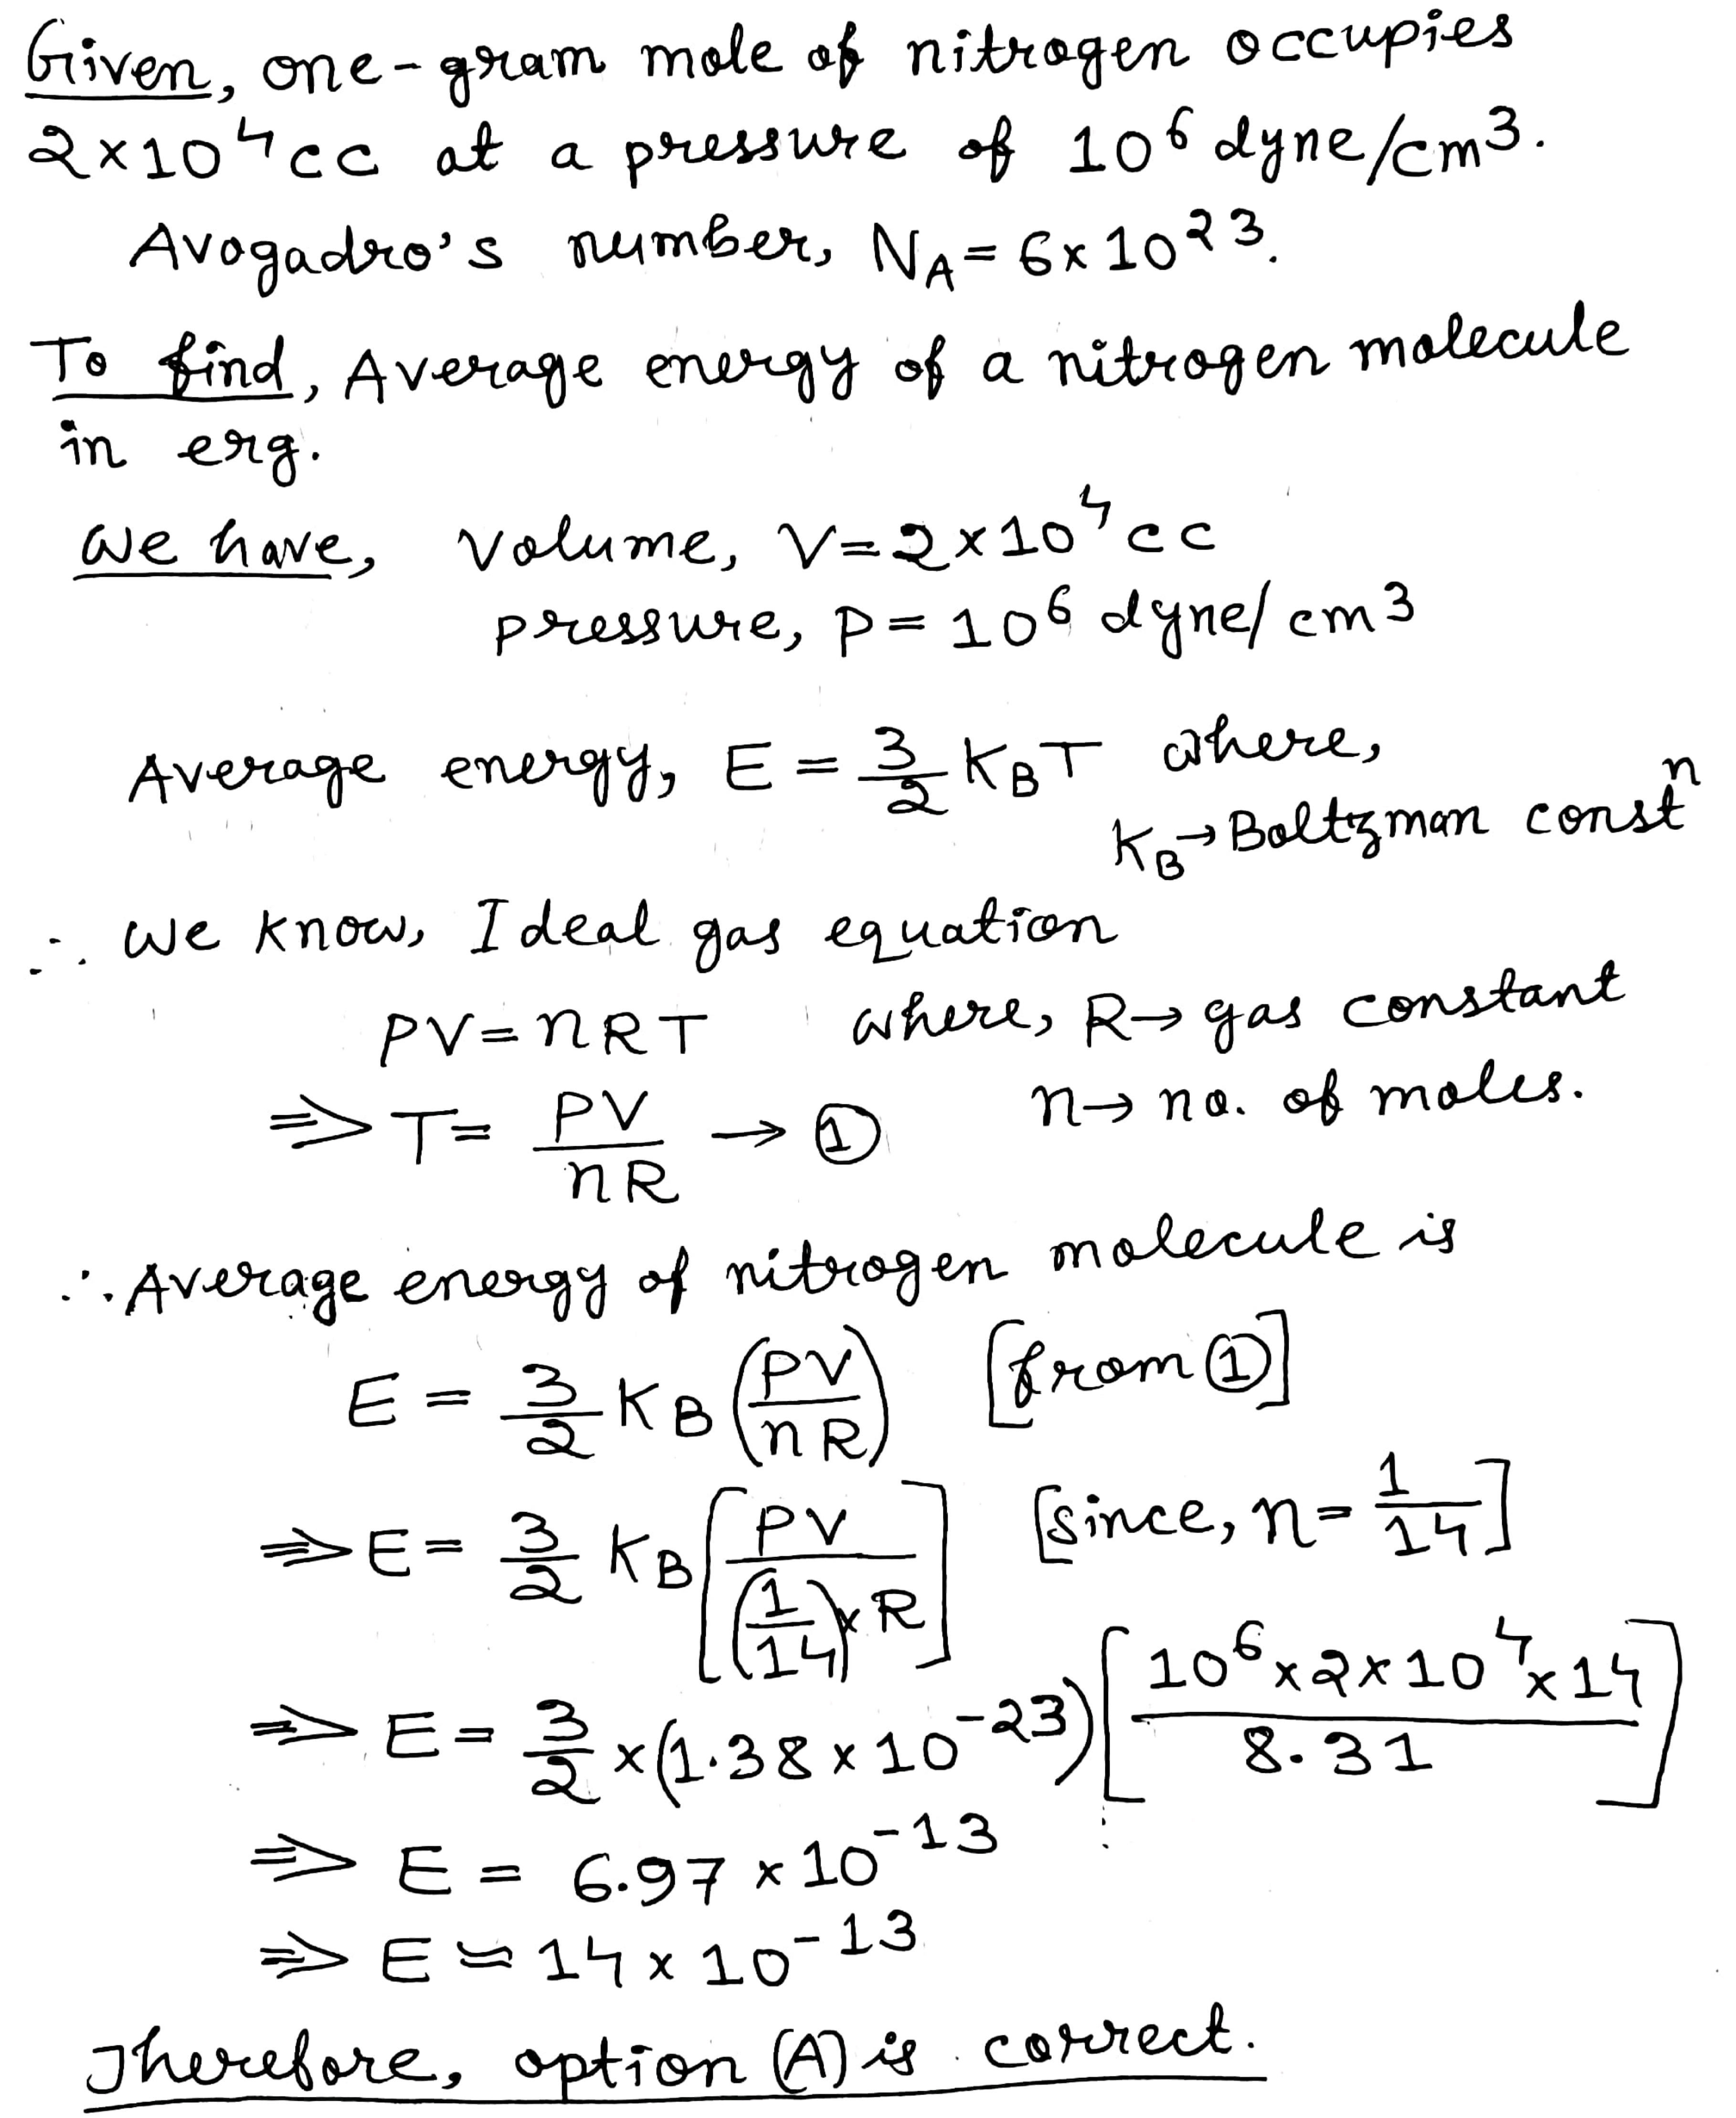 Given, one-gram mole of nitrogen occupies
2×10⁴ cc at a pressure of 10⁶ dyne/cm³.
Avogadro's number, N_A = 6×10²³.
To find, Average energy of a nitrogen molecule
in erg.
We have, Volume, V=2×10⁴cc
pressure, P= 10⁶ dyne/cm³
Average energy, E = 3/2 K_B T where,
K_B → Boltzman constⁿ
∴ We know, Ideal gas equation
PV=nRT where, R→ gas constant
⇒ T= PV/nR → ① n→ no. of moles.
∴ Average energy of nitrogen molecule is
E = 3/2 K_B (PV/nR) [from ①]
⇒ E = 3/2 K_B [PV/((1/14)×R] [since, n= 1/14]
⇒ E = 3/2 ×(1.38×10⁻²³) [10⁶×2×10⁴×14/8.31]
⇒ E = 6.97 ×10⁻¹³
⇒ E ≃ 14×10⁻¹³
Therefore, option (A) is correct.